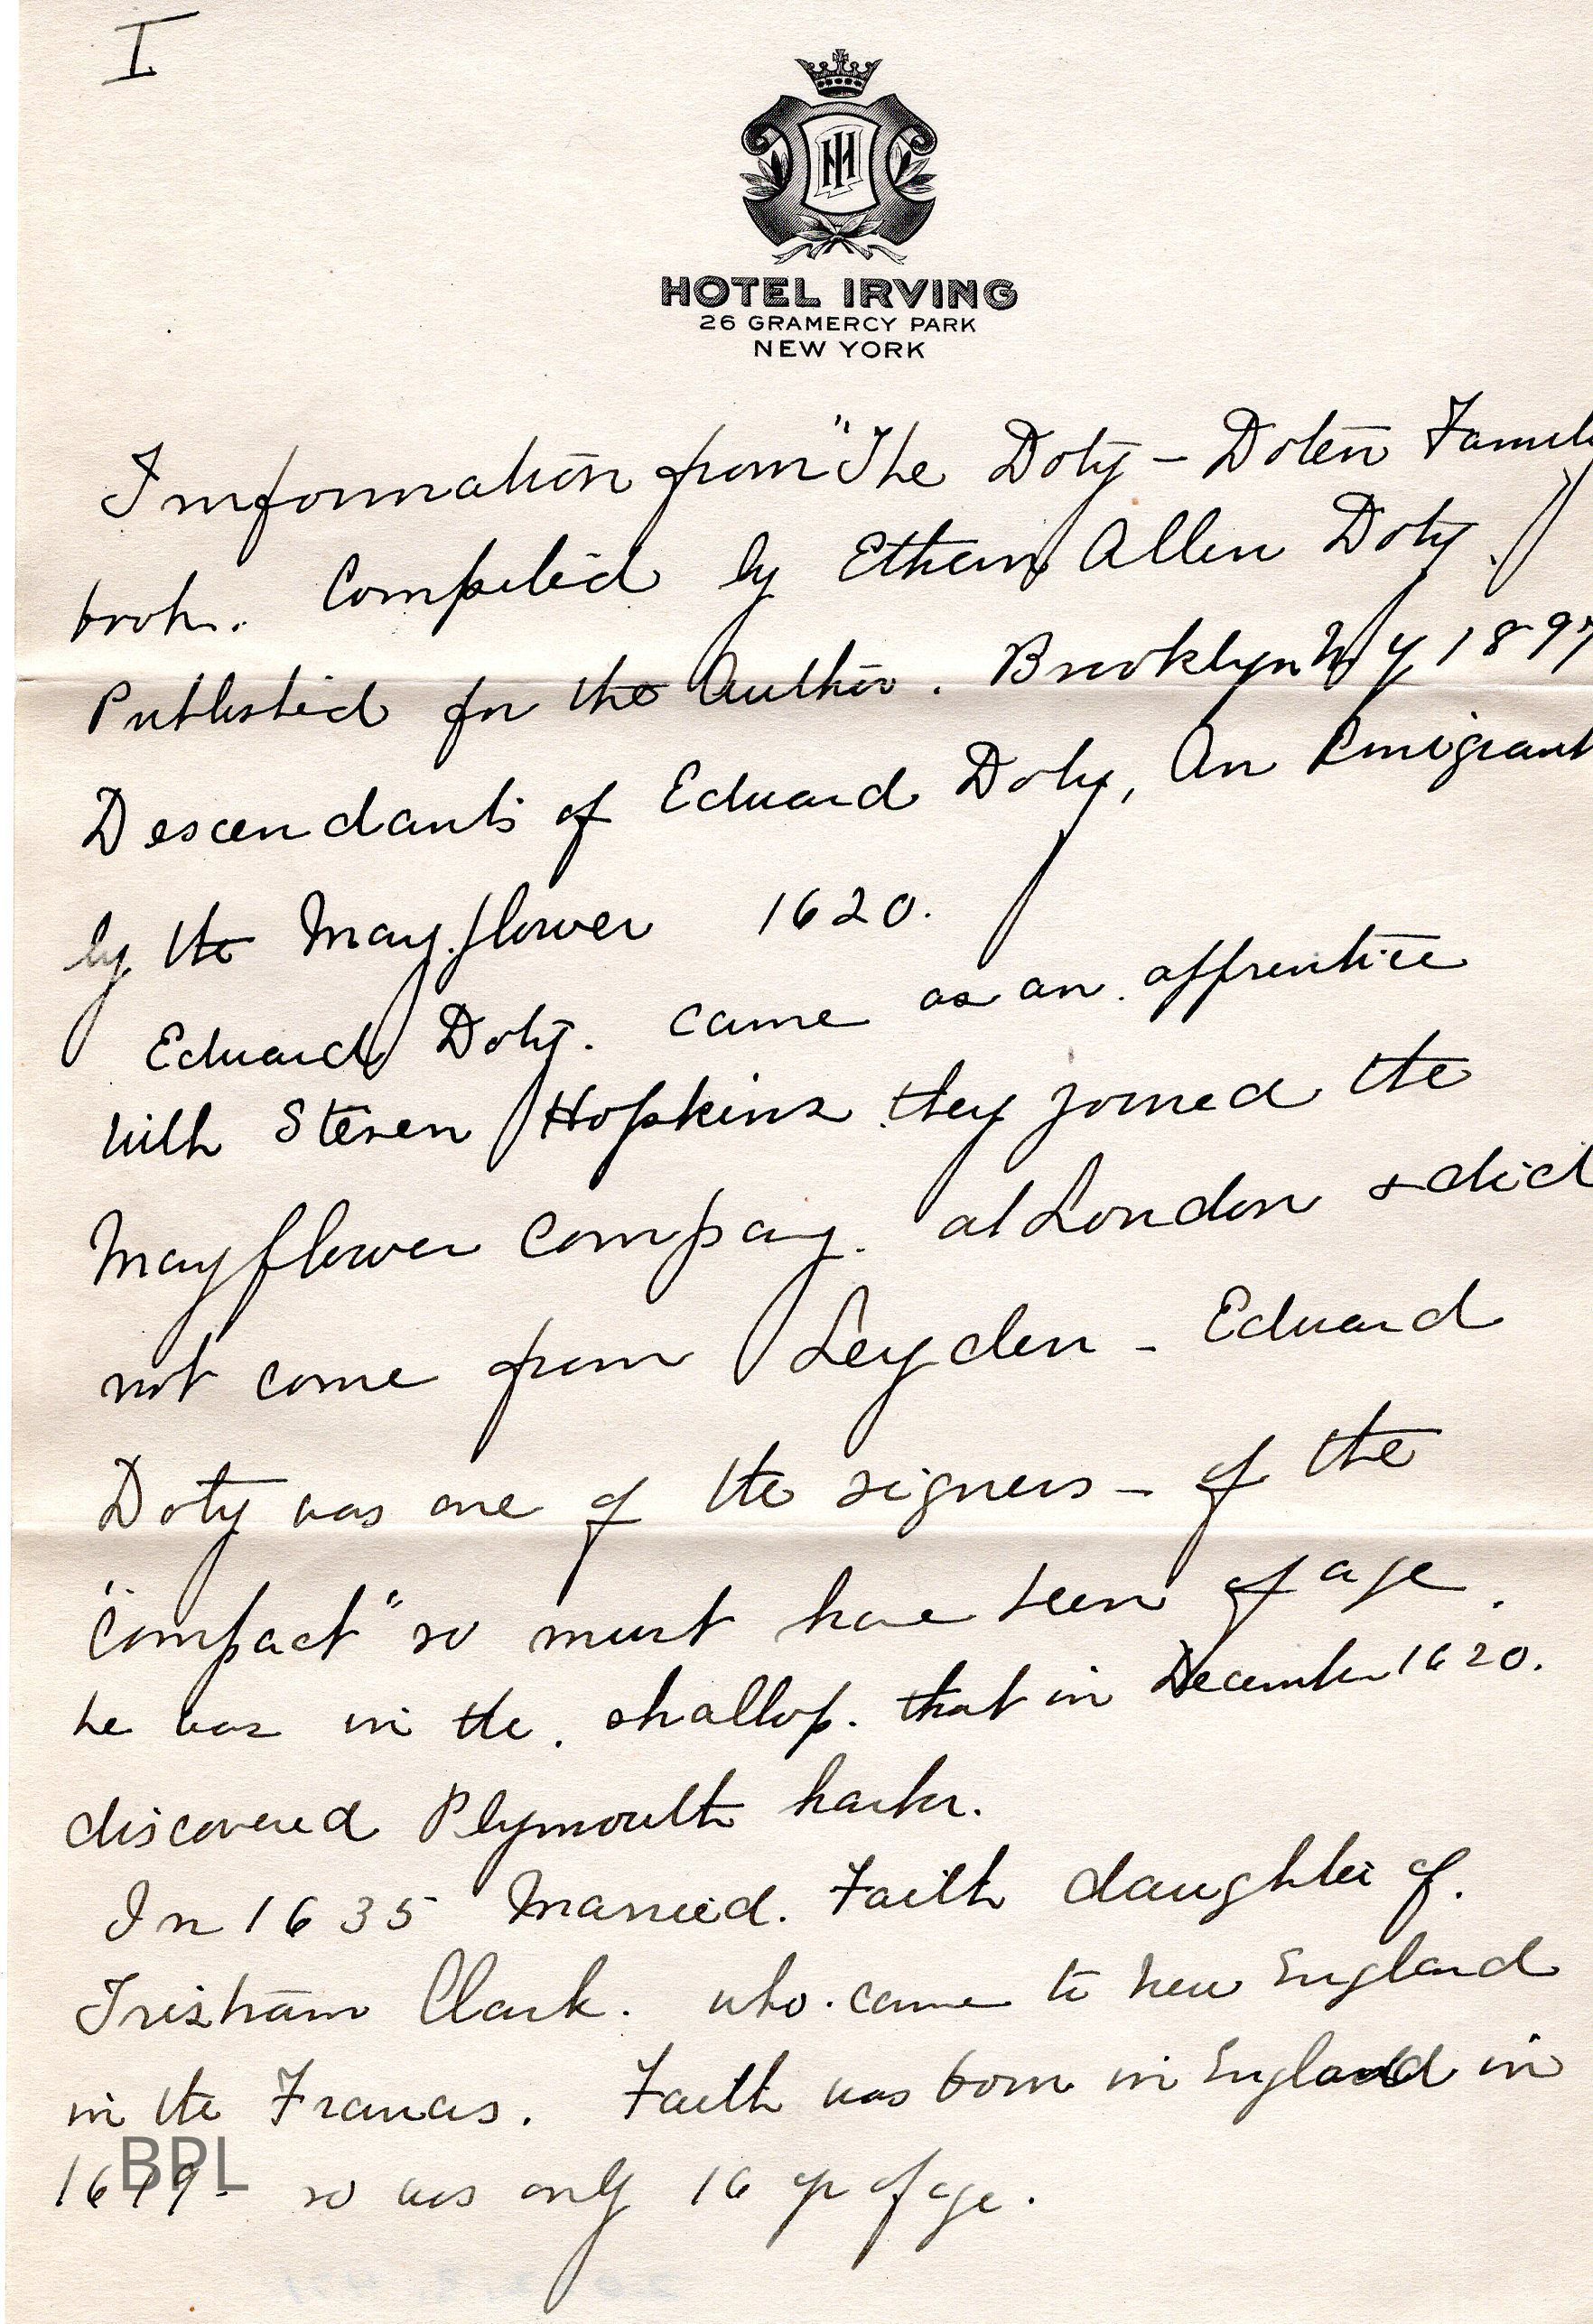 I
IH
HOTEL IRVING
26 GRAMERCY PARK
NEW YORK
Imformation from "The Doty - Doten Family
book. Compiled by Ethan Allen Doty.
Published for the Author. Brooklyn N y 1897
Descendants of Edward Doty, An Emigrant
by the Mayflower 1620.
Edward Doty. came as an apprentice
with Steven Hopkins they joined the
Mayflower Company. at London & did
not come from Leyden - Edward
Doty was one of the signers - of the
"Compact" so must have been of age.
he was in the shallop. that in December 1620.
discovered Plymouth harbor.
In 1635 Married. Faith daughter of.
Tristram Clark. who. came to New England
in the Francis. Faith was born in England in
1619 - so was only 16 yr of age.
BPL